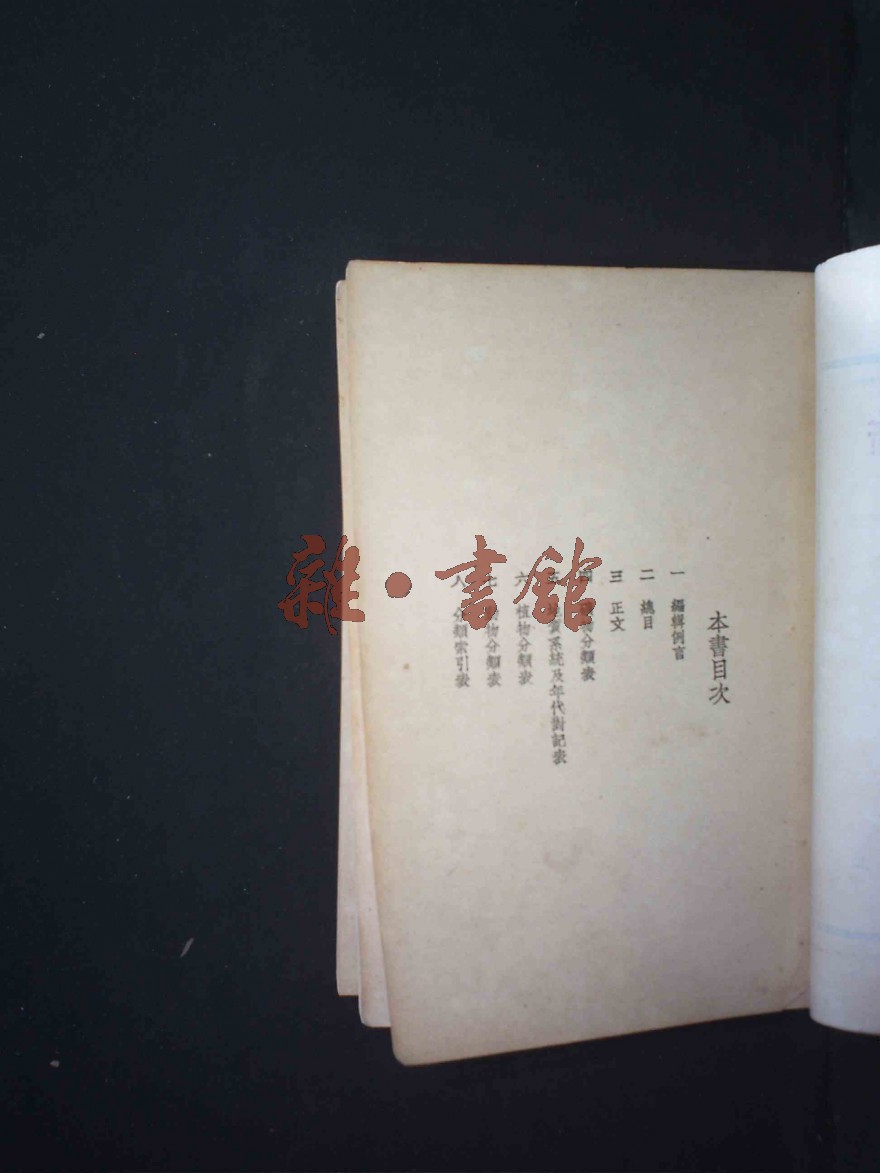 本書目次
一 編輯例言
二 總目
三 正文
四 物分類表
系統及年代對記表
六 植物分類表
七 物分類表
八 分類索引表
雜·書館